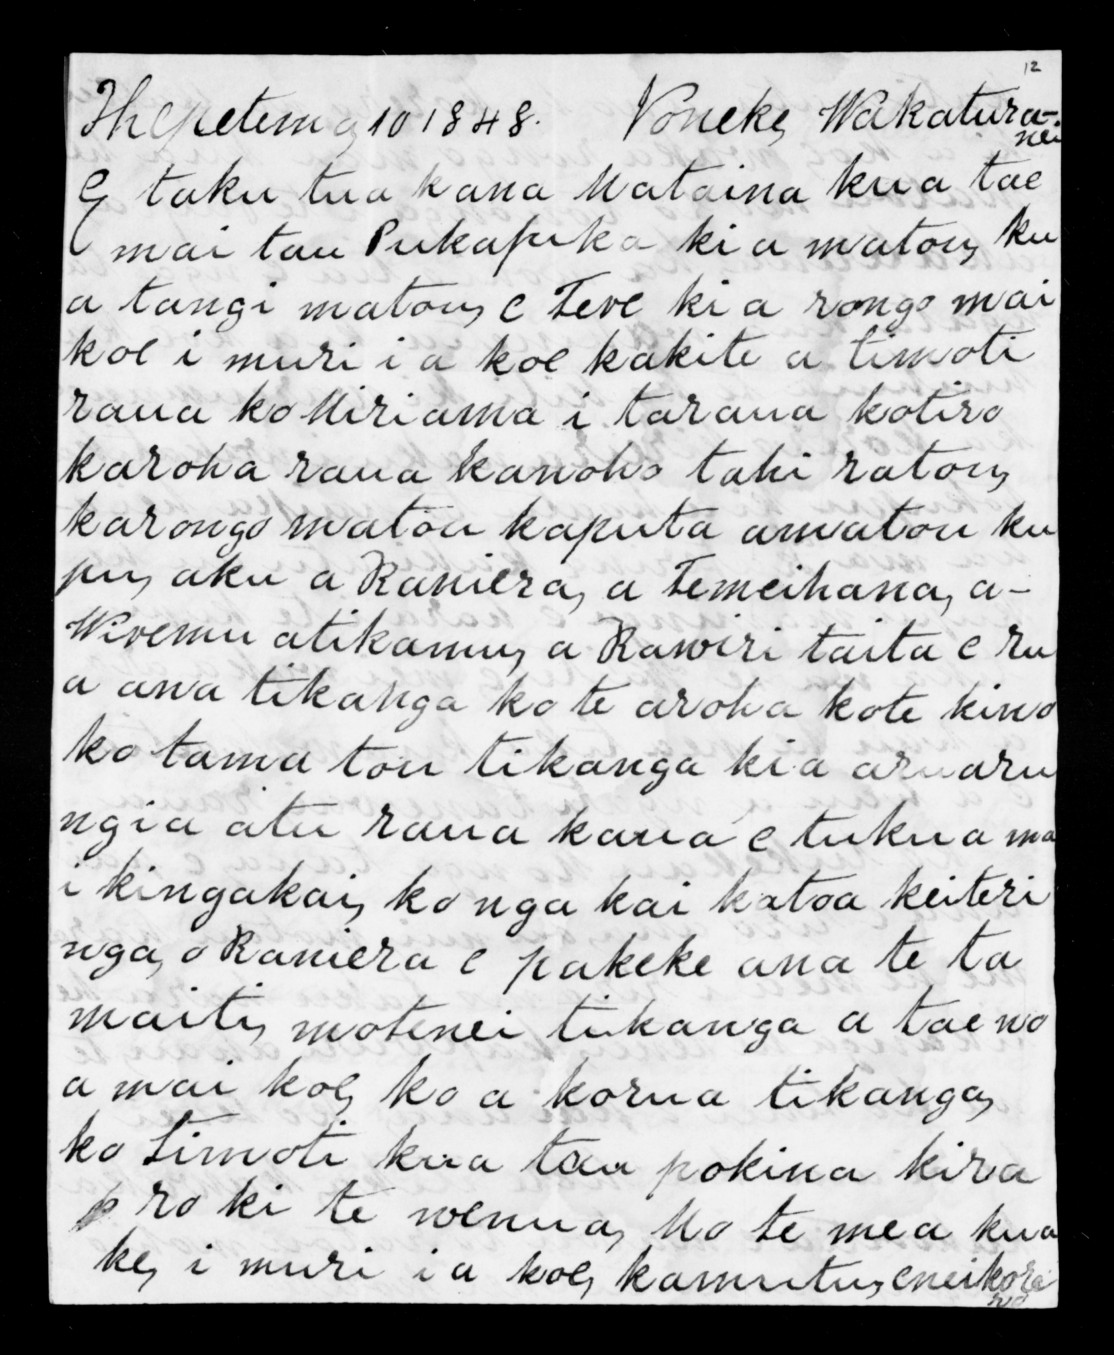 12
Hhepetema 10 1848. Poneke, Wakatura-
nei
E taku tua kana Mataina kua tae
mai tau Pukapuka ki a matou, ku
a tangi matou, e Teve ki a rongo mai
koe i muri i a koe kakite a timoti
raua ko Miriama i tarana kotiro
karoha raua kanoho tahi ratou,
karongo matou kaputa amatou ku
pu, aku a Raniera, a Temeihana, a-
Wiremu atikamu, a Rawiri taita e ru
a ana tikanga ko te aroha kote kino
ko tama tou tikanga kia aruaru
ngia atu raua kaua e tukua ma
i kingakai, ko nga kai katoa keiteri
nga, o Raniera e pakeke ana te ta
maiti, motenei tikanga a tae no
a mai koe, ko a korua tikanga,
ko Timoti kua tau pokina kira
ro ki te wenua, No te mea kua
ke, i muri i a koe, kamutu, eneikore
ro